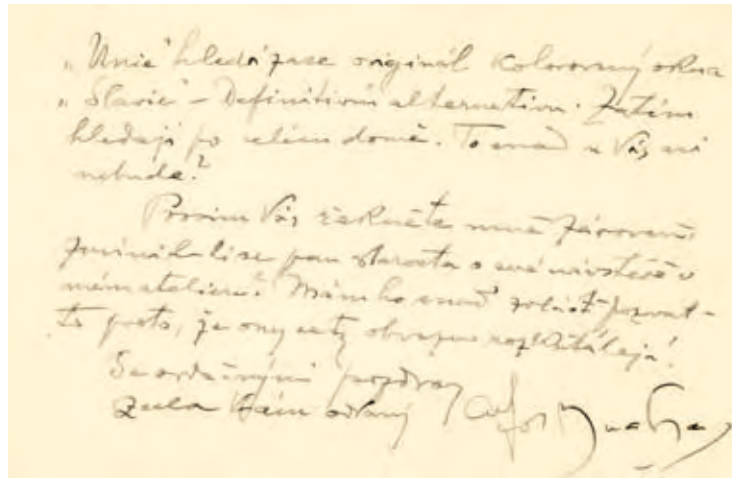 „Unie" hledá zase originál kolorovaný okna
„Slavie" – Definitivní alternativu. Zatím
hledají po celém domě. To snad u Vás ani
nebude?
Prosím Vás řekněte mně zároveň,
zmínil-li se pan starosta o své návštěvě v
mém atelieru? Mám ho snad zvlášť pozvat –
to proto, že ony ty obrazy
Se srdečnými pozdravy
zcela Vám oddaný Alfons Mucha